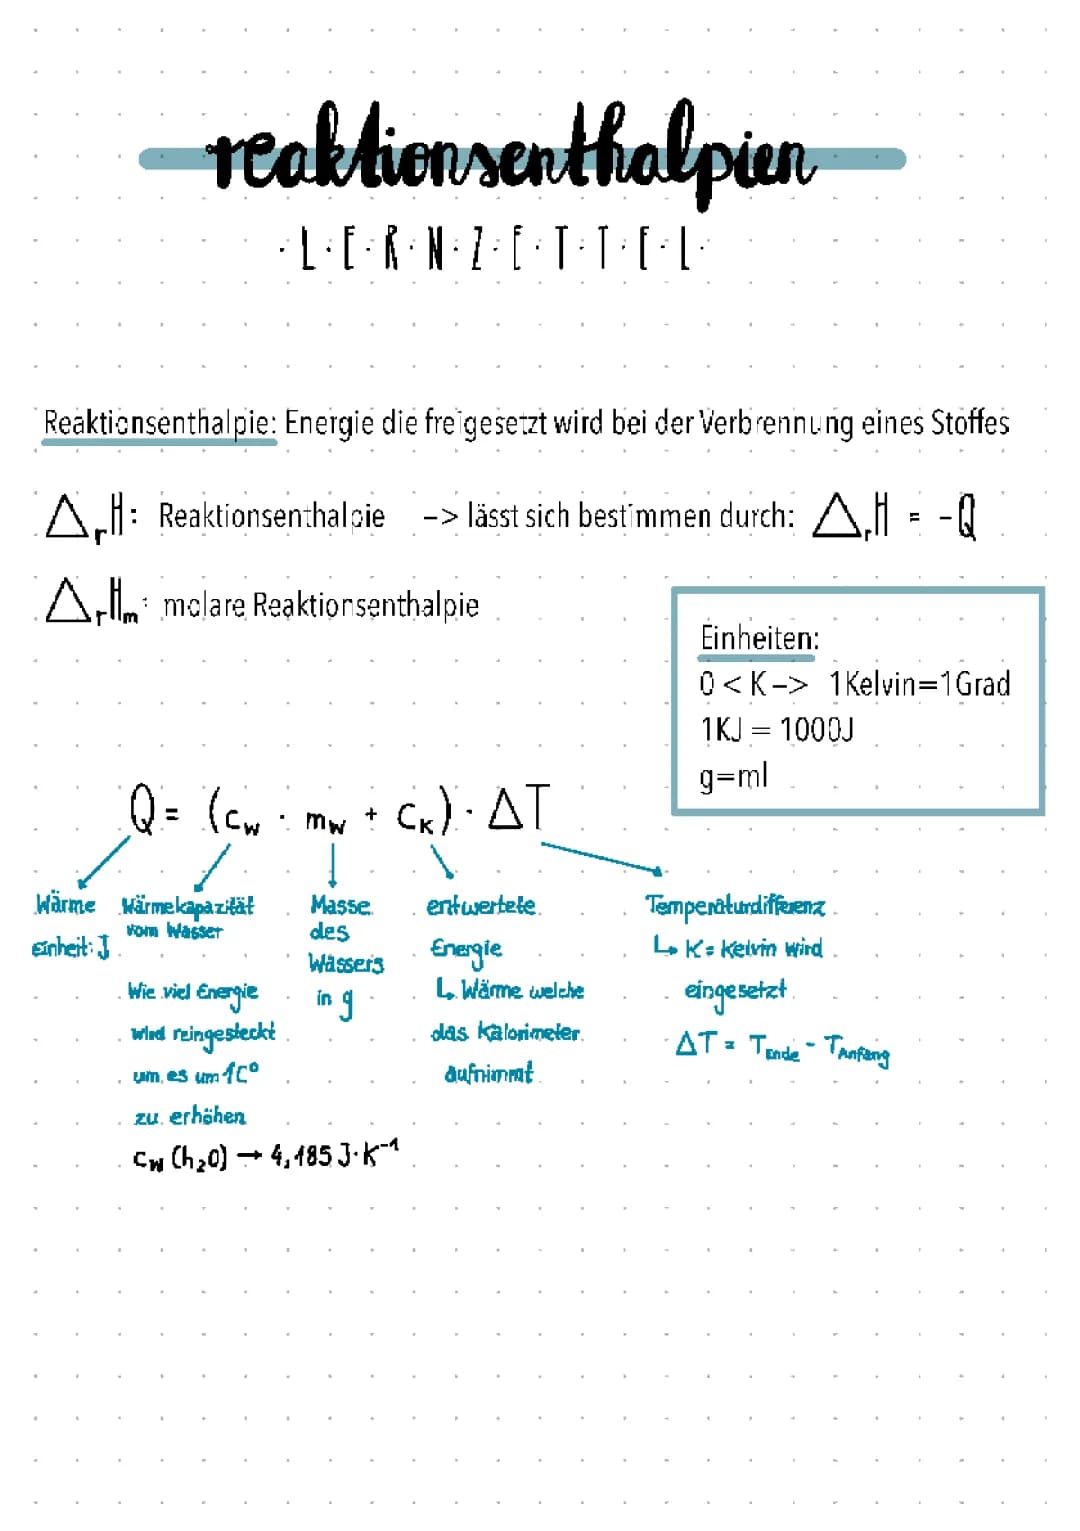 reaktionsenthalpien
·L·E·R·N·Z·E·T·T·E·L·
Reaktionsenthalpie: Energie die freigesetzt wird bei der Verbrennung eines Stoffes
△rH: Reaktionsenthalpie -> lässt sich bestimmen durch: △rH = -Q
△rHm: molare Reaktionsenthalpie
Einheiten:
0 < K -> 1Kelvin=1Grad
1KJ = 1000J
g=ml
Q = (cw · mw + CK) · ΔT
Wärme
einheit: J
Wärmekapazität
vom Wasser
Wie viel Energie
wird reingesteckt
um es um 1C°
zu erhöhen
cw (h2O) → 4,185 J·K⁻¹
Masse
des
Wassers
in g
entwertete
Energie
↳ Wärme welche
das Kalorimeter
aufnimmt
Temperaturdifferenz
↳ K = Kelvin wird
eingesetzt
ΔT = TEnde - TAnfang